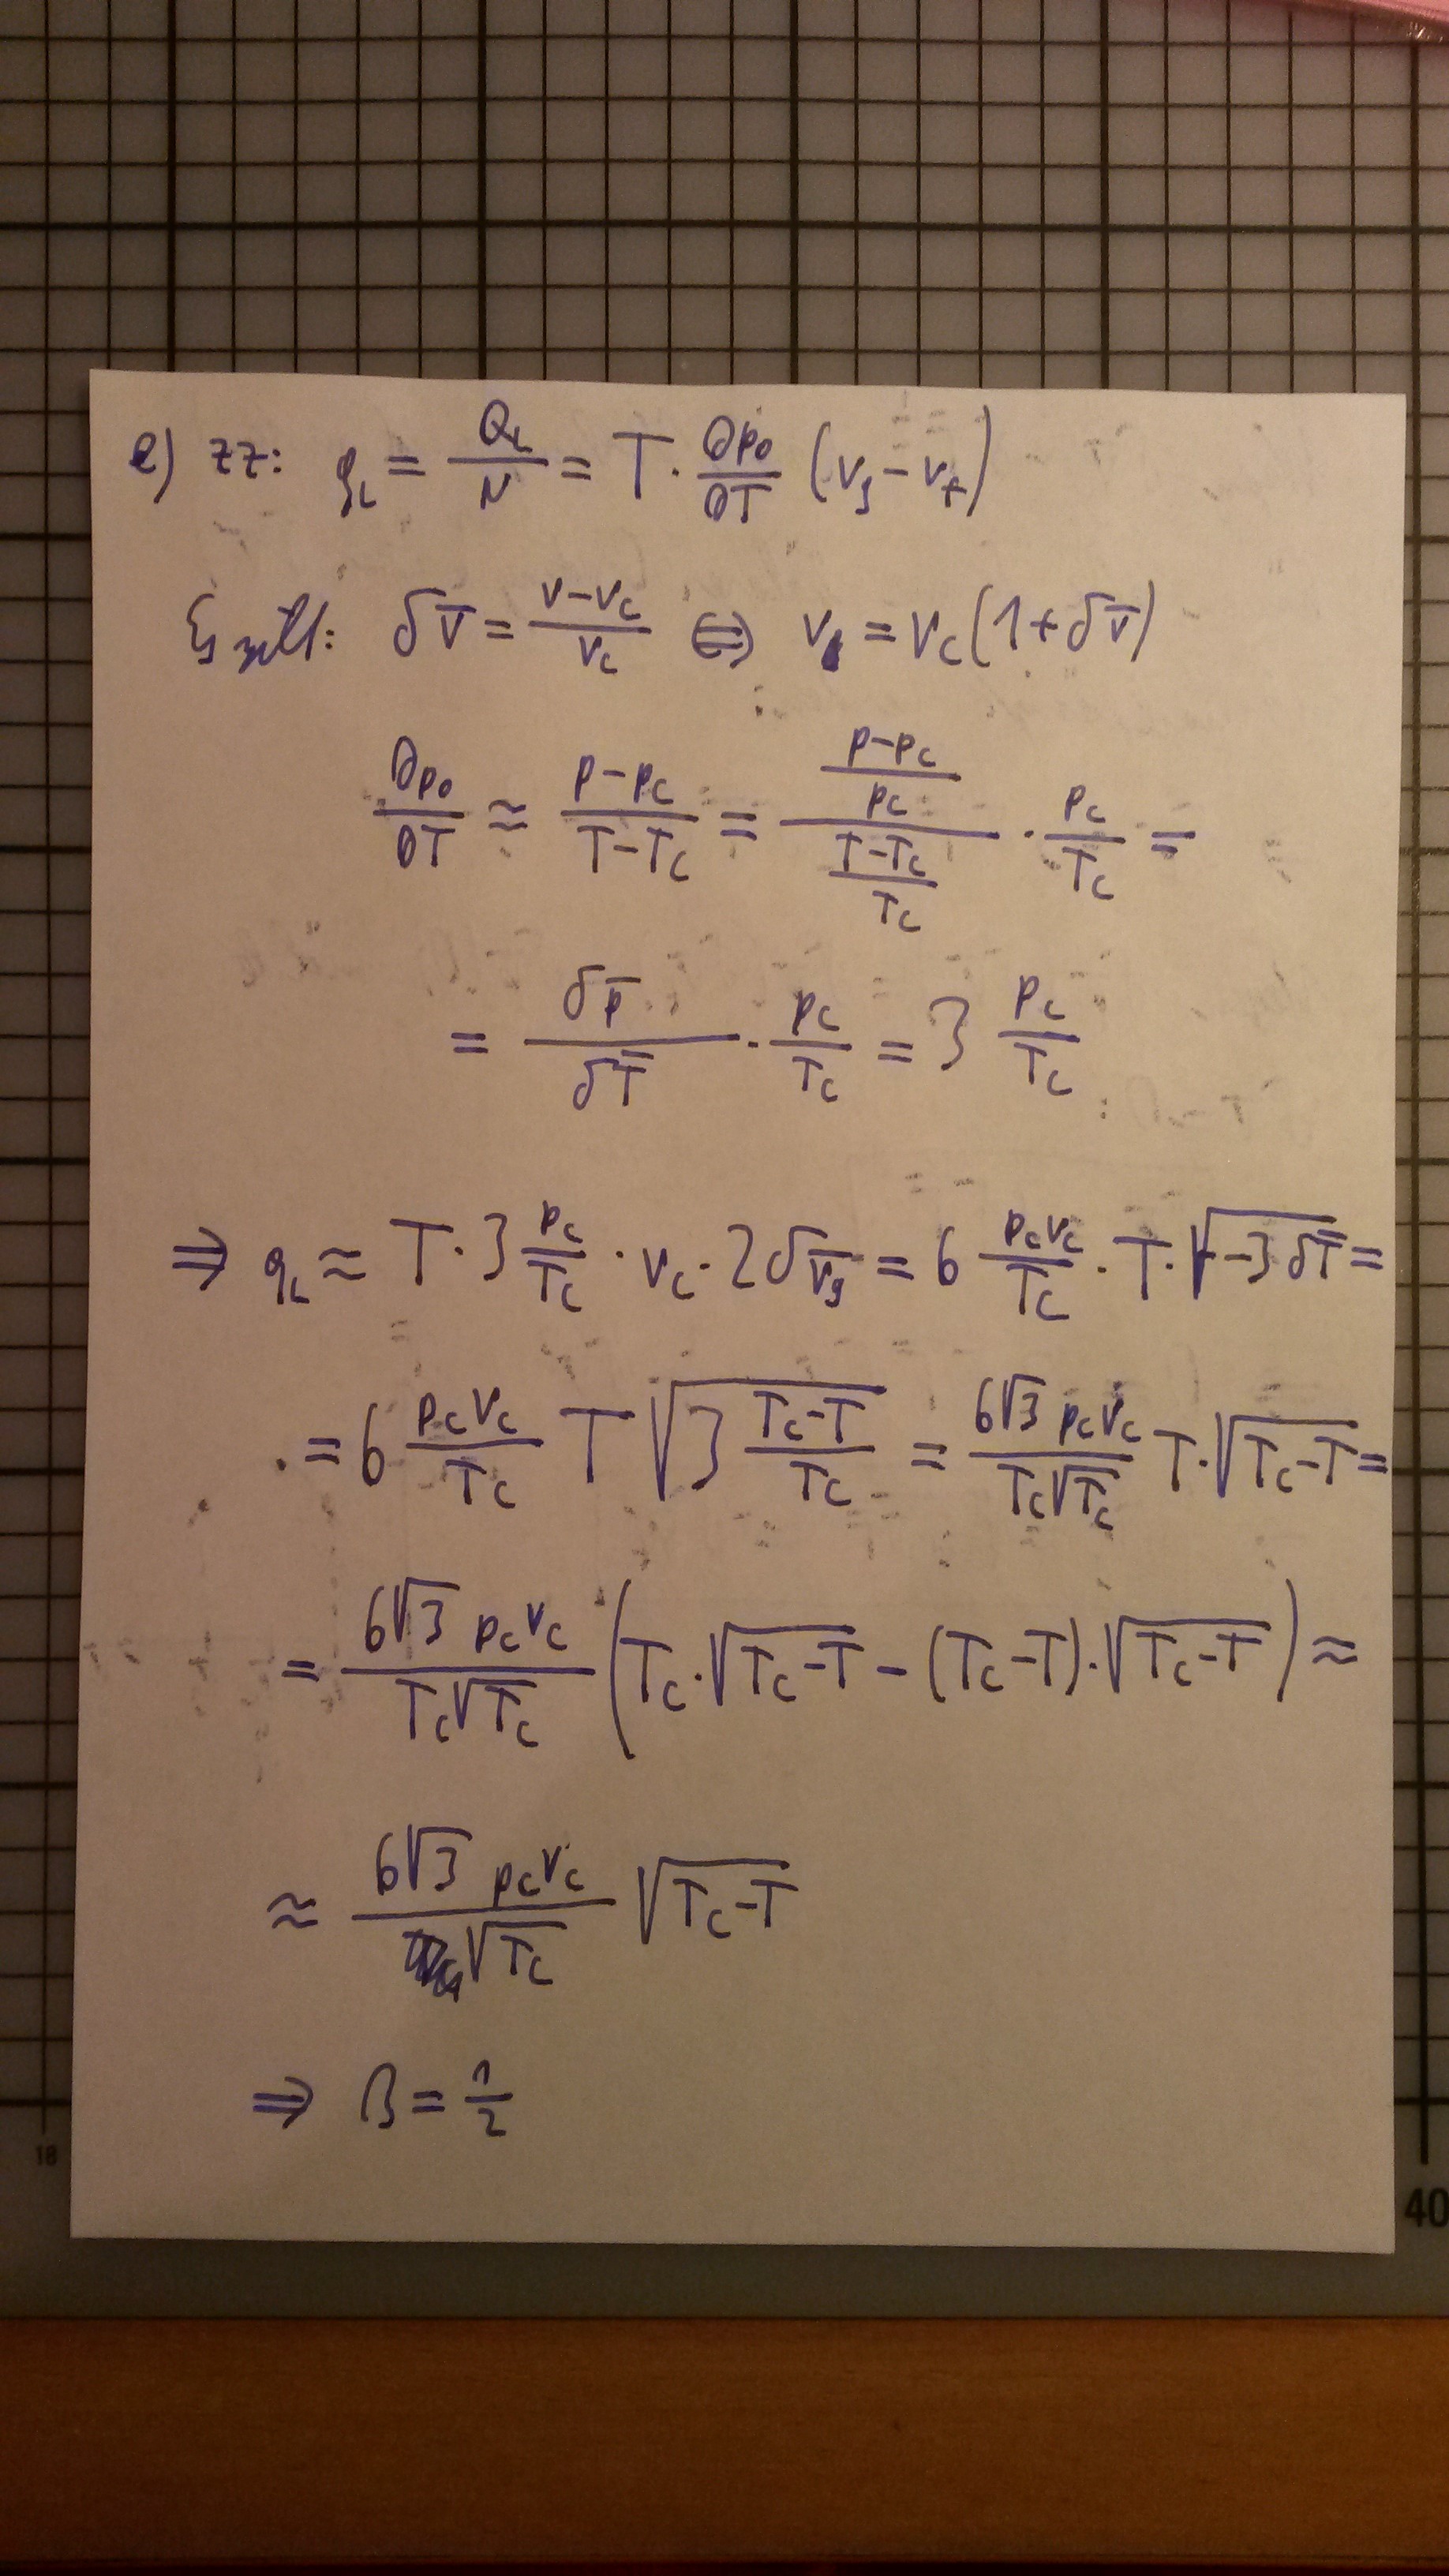 e) zz: q_L = Q_L/N = T · ∂p₀/∂T (v_g − v_f)
Es gilt: δv̄ = (v−v_c)/v_c ⇔ v = v_c(1+δv̄)
∂p₀/∂T ≈ (p−p_c)/(T−T_c) = ((p−p_c)/p_c)/((T−T_c)/T_c) · p_c/T_c =
= δp̄/δT̄ · p_c/T_c = 3 p_c/T_c
⇒ q_L ≈ T · 3 p_c/T_c · v_c · 2δv̄_g = 6 p_c v_c/T_c · T · √(−3δT̄) =
= 6 p_c v_c/T_c T √(3 (T_c−T)/T_c) = 6√3 p_c v_c/(T_c√T_c) T · √(T_c−T) =
= 6√3 p_c v_c/(T_c√T_c) (T_c · √(T_c−T) − (T_c−T) · √(T_c−T)) ≈
≈ 6√3 p_c v_c/√T_c √(T_c−T)
⇒ β = 1/2
18
40